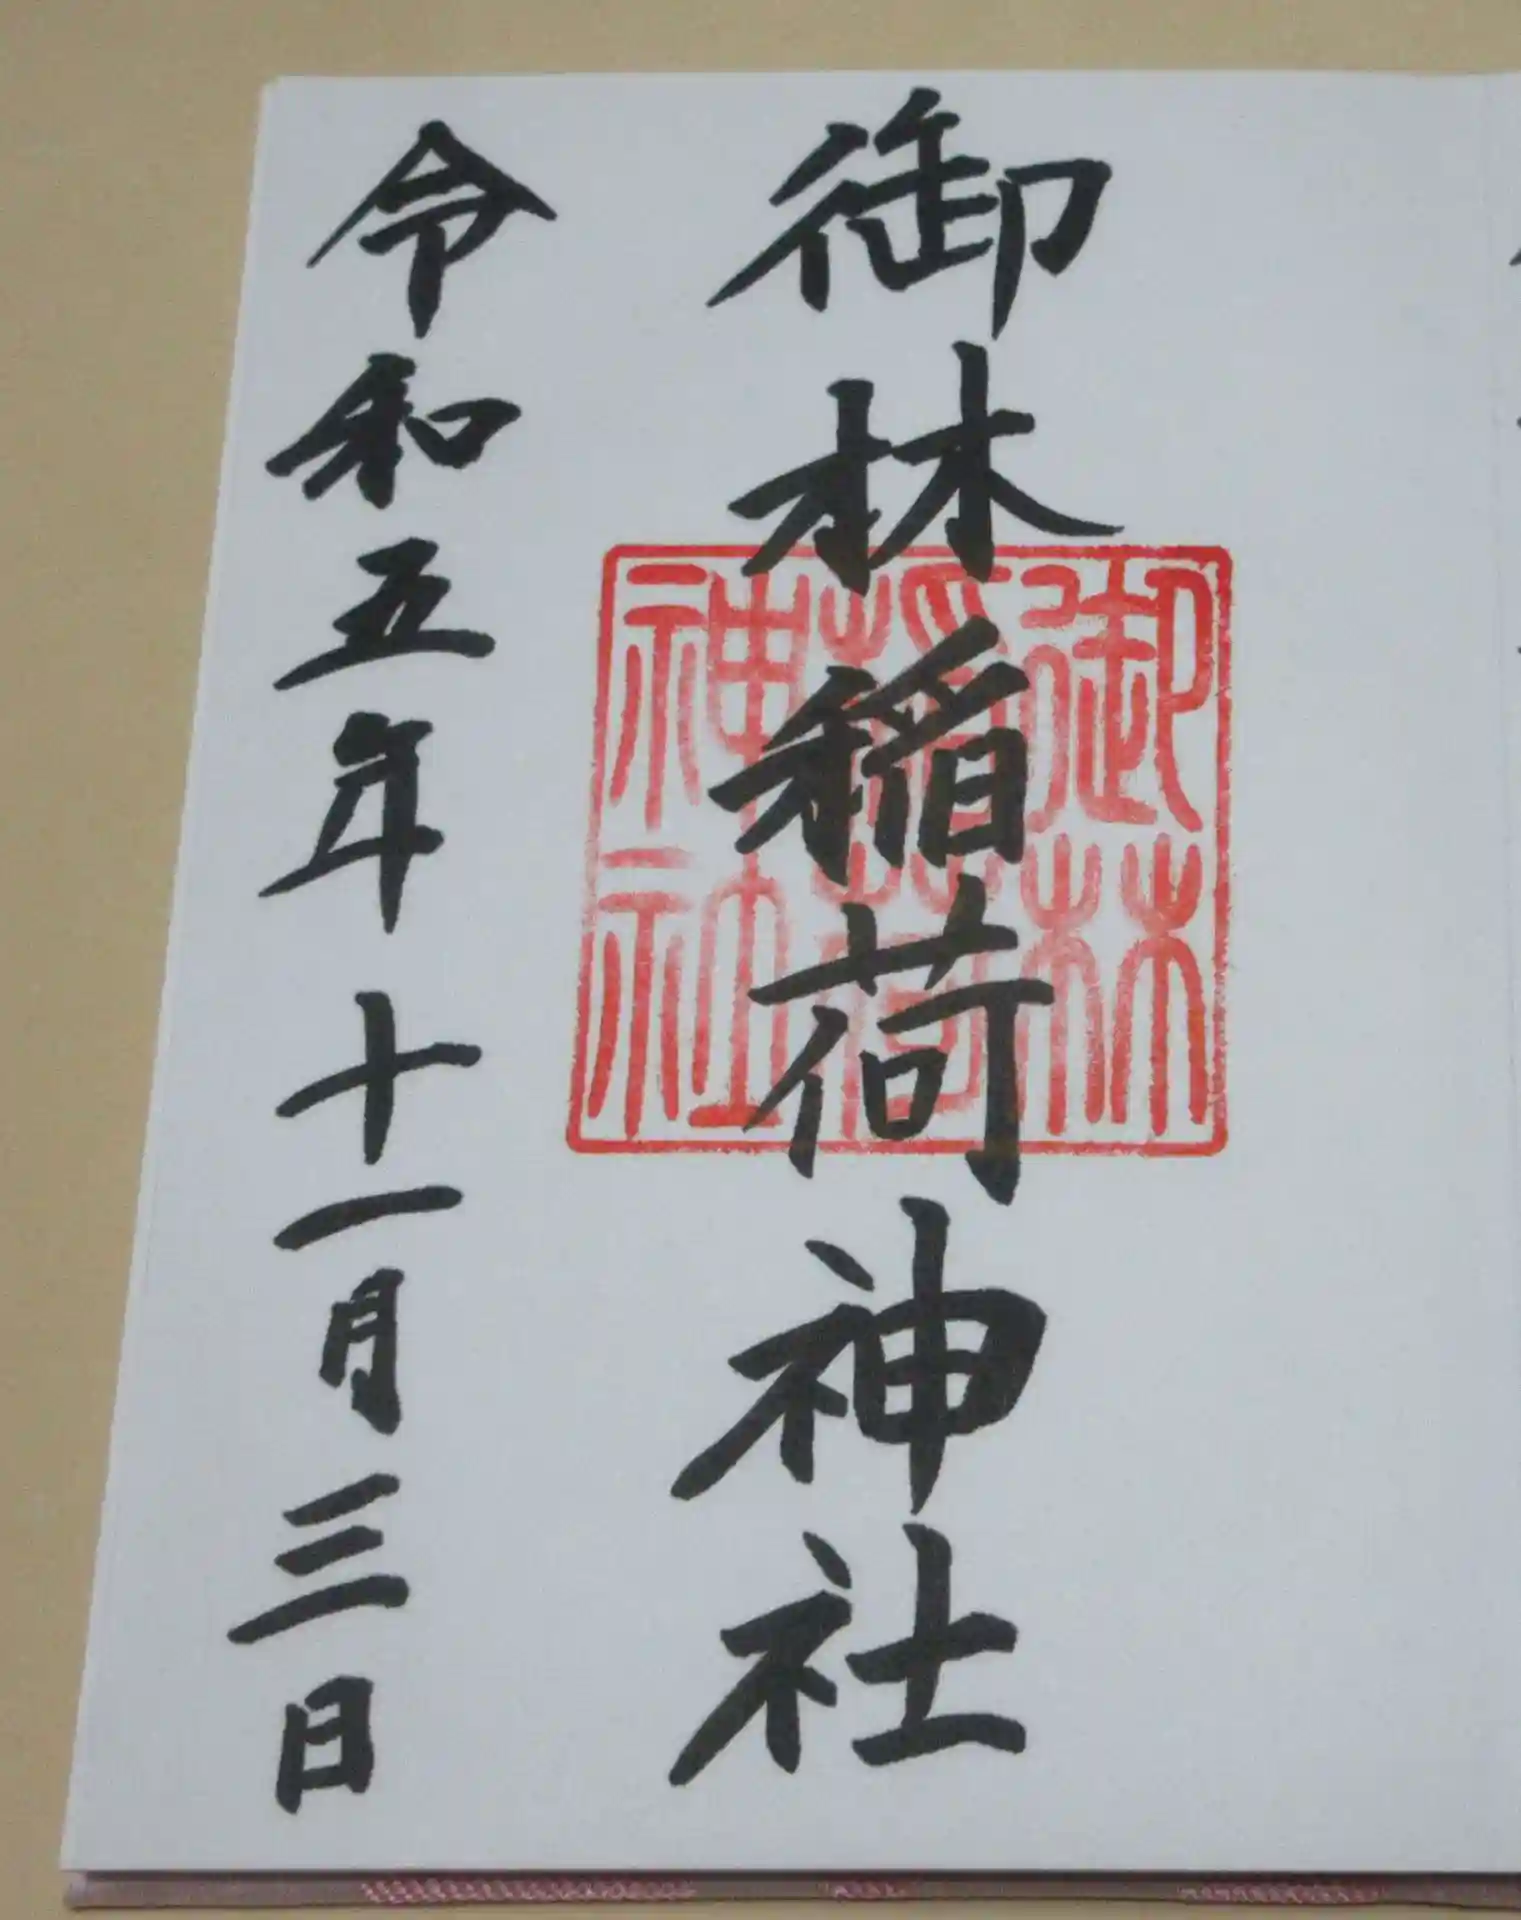 御林稲荷神社
御林
稲荷
神社
令和五年十一月三日